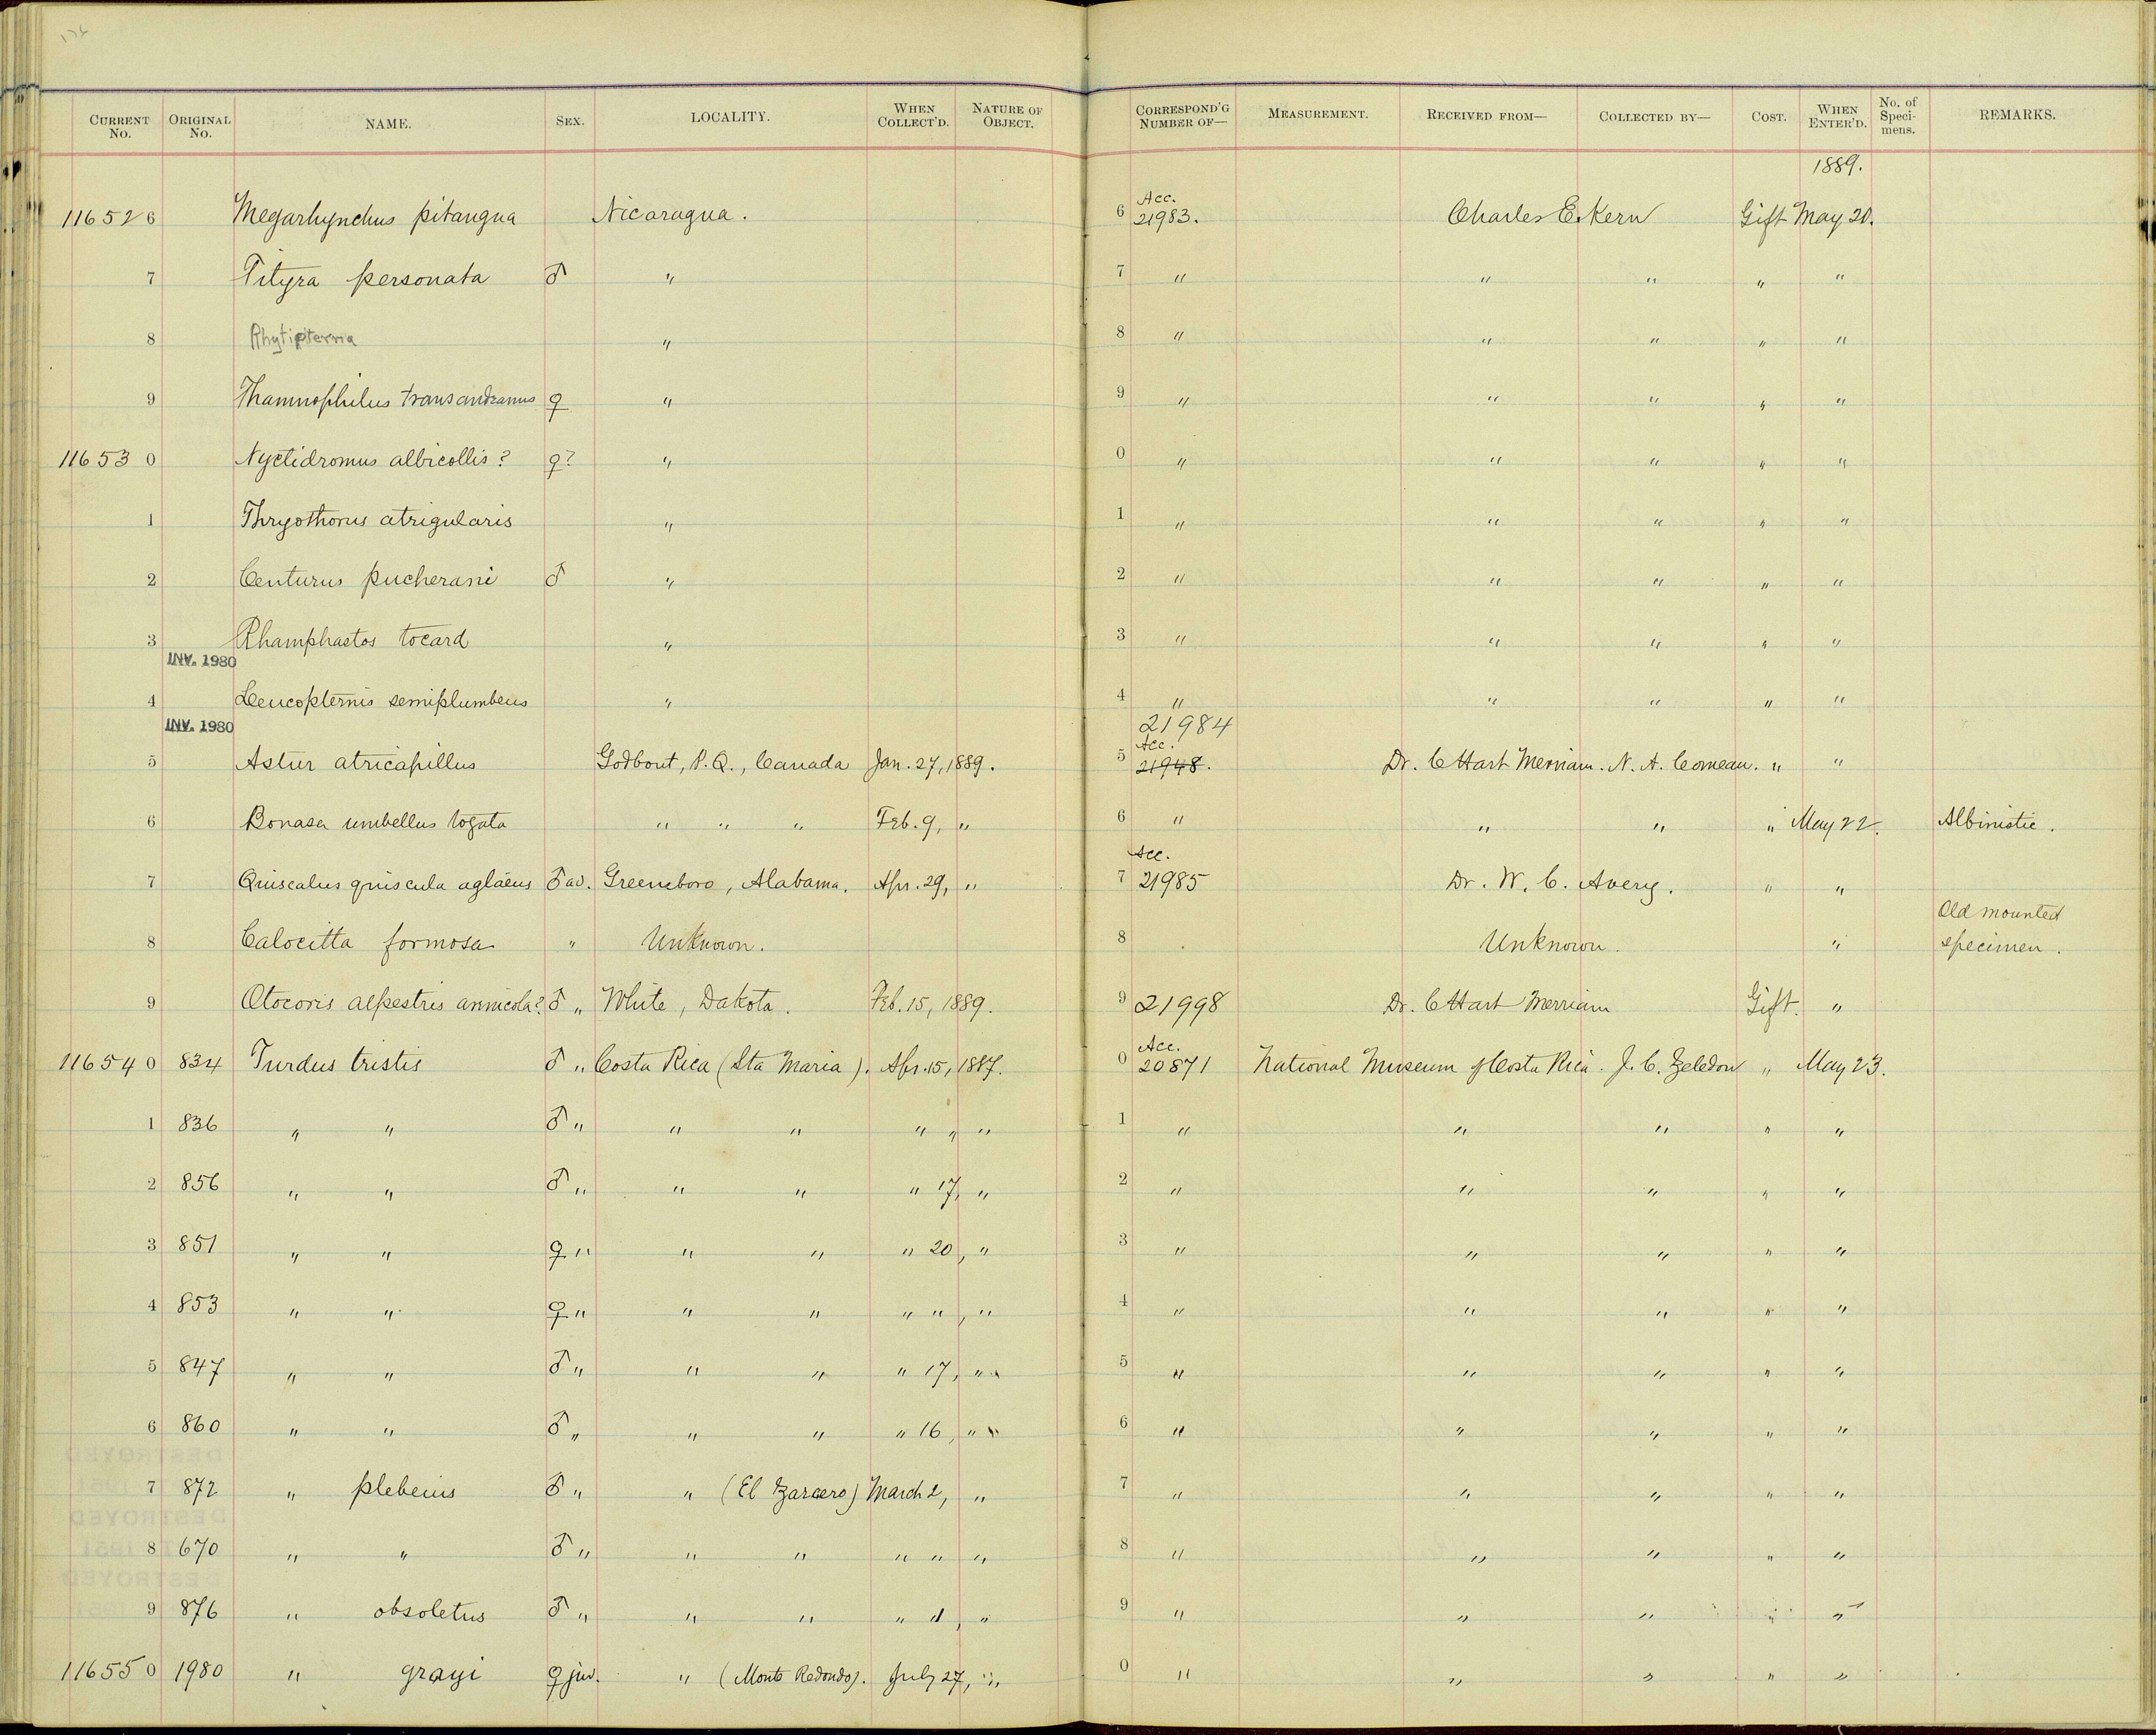 CURRENT No. ORIGINAL No. NAME. SEX. LOCALITY. WHEN COLLECT'D. NATURE OF OBJECT. CORRESPOND'G NUMBER OF— MEASUREMENT. RECEIVED FROM— COLLECTED BY— COST. WHEN ENTER'D. No. of Speci-mens. REMARKS.
1889.
116526 Megarhynchus pitangua Nicaragua. 6 Acc. 21983. Charles E. Kern Gift May 20.
7 Tityra personata ♂ " 7 " " " " "
8 Rhytipterna " 8 " " " " "
9 Thamnophilus transandeanus ♀ " 9 " " " " "
116530 Nyctidromus albicollis? ♀? " 0 " " " " "
1 Thryothorus atrigularis " 1 " " " " "
2 Centurus pucherani ♂ " 2 " " " " "
3 Rhamphastos tocard " 3 " " " " "
INV. 1980
4 Leucopternis semiplumbeus " 4 " " " " "
INV. 1980
21984
5 Astur atricapillus Godbout, P.Q., Canada Jan. 27, 1889. 5 Acc. 21948. Dr. C Hart Merriam. N. A. Comeau. " "
6 Bonasa umbellus togata " " " Feb. 9, " 6 " " " " May 22. Albinistic.
7 Quiscalus quiscula aglaeus ♂ ad. Greensboro, Alabama. Apr. 29, " 7 Acc. 21985 Dr. W. C. Avery. " "
8 Calocitta formosa " Unknown. 8 Unknown. " Old mounted specimen.
9 Otocoris alpestris arenicola? ♂ " White, Dakota. Feb. 15, 1889. 9 21998 Dr. C Hart Merriam Gift. "
116540 834 Turdus tristis ♂ " Costa Rica (Sta Maria). Apr. 15, 1887. 0 Acc. 20871 National Museum of Costa Rica. J. C. Zeledon " May 23.
1 836 " " ♂ " " " " " " 1 " " " " "
2 856 " " ♂ " " " " 17, " 2 " " " " "
3 851 " " ♀ " " " " 20, " 3 " " " " "
4 853 " " ♀ " " " " ", " 4 " " " " "
5 847 " " ♂ " " " " 17, " 5 " " " " "
6 860 " " ♂ " " " " 16, " 6 " " " " "
7 872 " plebeius ♂ " " (El Zarcero) March 2, " 7 " " " " "
8 670 " " ♂ " " " " " " 8 " " " " "
9 876 " obsoletus ♂ " " " " ", " 9 " " " " "
116550 1980 " grayi ♀ juv. " (Monte Redondo). July 27, " 0 " " " " "